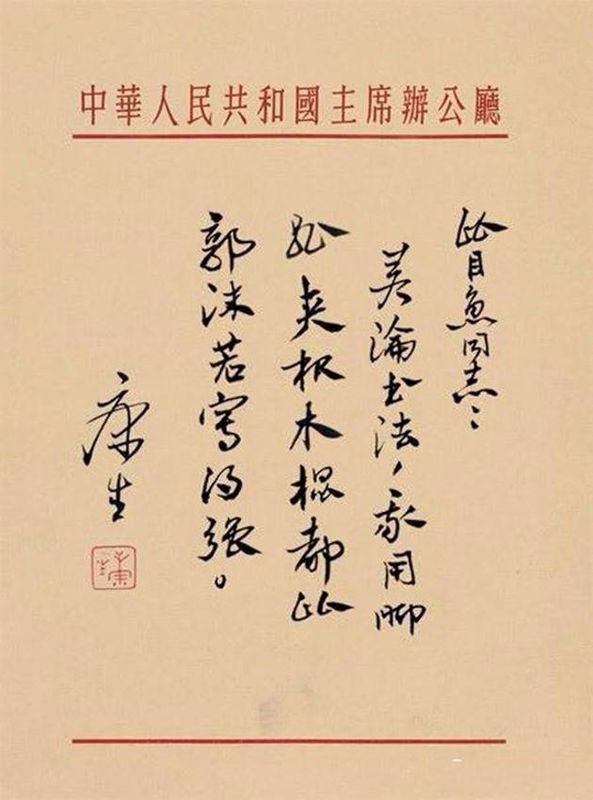 中華人民共和國主席辦公廳
比目魚同志：
若論书法，我用脚
趾夹根木棍都比
郭沫若寫得强。
康生